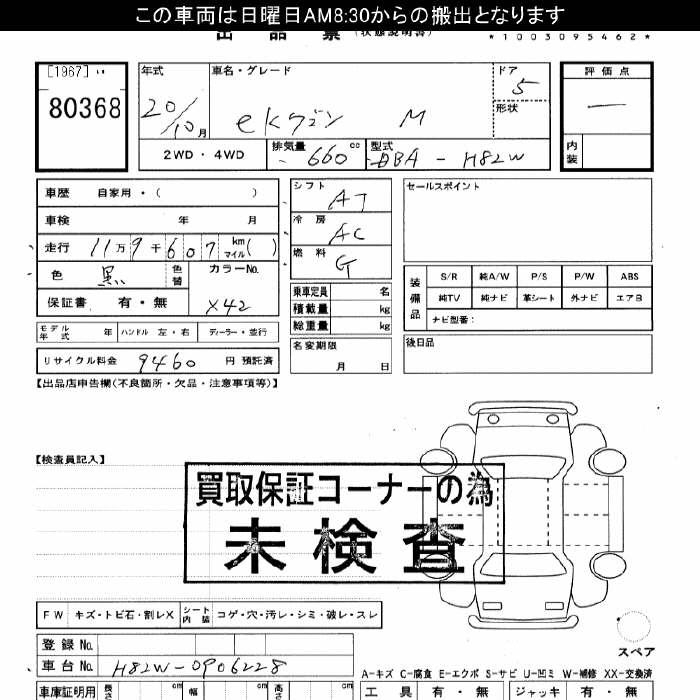 この車両は日曜日AM8:30からの搬出となります
出品票 (状態説明書)
*1003095462*
[1967]
80368
年式
20/10月
車名・グレード
eKワゴン M
ドア
5
形状
評価点
—
内装
2WD・4WD
排気量
660 cc
型式
DBA - H82W
車歴 自家用・( )
車検 年 月
走行 11万9千607 km マイル( )
色 黒 色替
カラーNo.
X42
保証書 有・無
モデル年式 年 ハンドル 左・右 ディーラー・並行
リサイクル料金 9460 円 預託済
シフト AT
冷房 AC
燃料 G
乗車定員 名
積載量 kg
総重量 kg
名変期限
月 日
セールスポイント
装備品
S/R 純A/W P/S P/W ABS
純TV 純ナビ 革シート 外ナビ エアB
ナビ型番:
後日品
【出品店申告欄(不良箇所・欠品・注意事項等)】
【検査員記入】
買取保証コーナーの為
未検査
FW キズ・トビ石・割レX シート内装 コゲ・穴・汚レ・シミ・破レ・スレ
スペア
登録No.
車台No. H82W-0906228
A-キズ C-腐食 E-エクボ S-サビ U-凹ミ W-補修 XX-交換済
車庫証明用 長さ cm 幅 cm 高さ cm
工具 有・無 ジャッキ 有・無